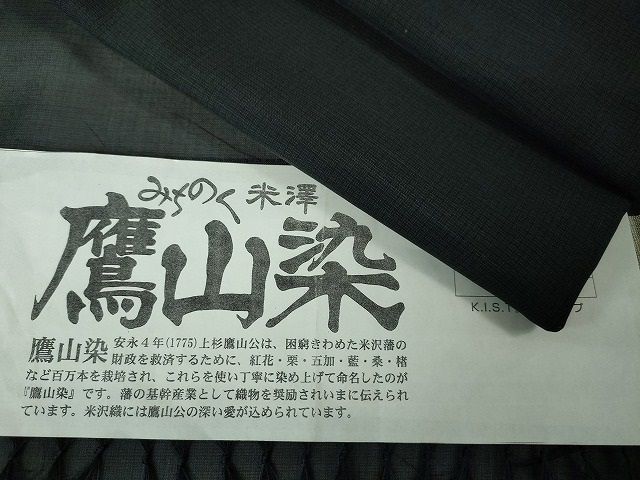 みちのく 米澤
鷹山染
鷹山染 安永4年(1775)上杉鷹山公は、困窮きわめた米沢藩の
財政を救済するために、紅花・栗・五加・藍・桑・楮
など百万本を栽培され、これらを使い丁寧に染め上げて命名したのが
『鷹山染』です。藩の基幹産業として織物を奨励されいまに伝えられ
ています。米沢織には鷹山公の深い愛が込められています。
K.I.S.